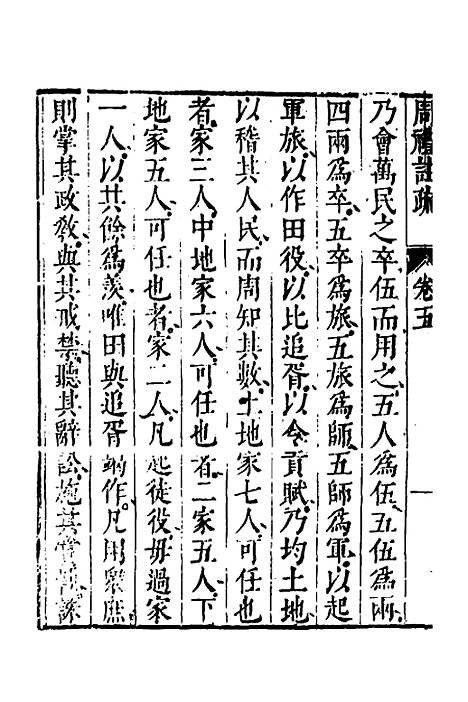 周禮註疏 卷五 一
乃會萬民之卒伍而用之五人爲伍五伍爲兩
四兩爲卒五卒爲旅五旅爲師五師爲軍以起
軍旅以作田役以比追胥以令貢賦乃均土地
以稽其人民而周知其數上地家七人可任也
者家三人中地家六人可任也者二家五人下
地家五人可任也者家二人凡起徒役毋過家
一人以其餘爲羨唯田與追胥竭作凡用衆庶
則掌其政教與其戒禁聽其辭訟施其賞罰誅